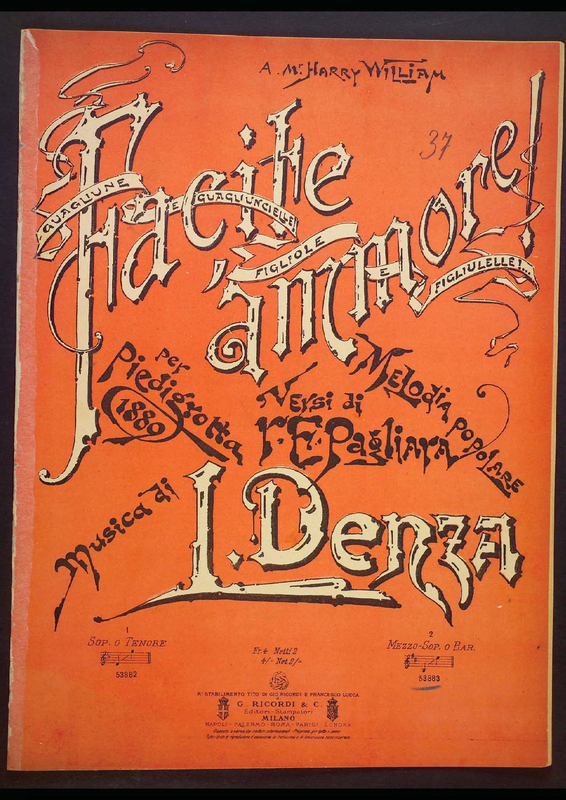 A. Mr. HARRY WILLIAM
37
Facite
GUAGLIUNE E GUAGLIUNCIELLE
'ammore!
FIGLIOLE E FIGLIULELLE!...
per Piedigrotta
1889
Melodia popolare
Versi di
R. E. Pagliara
Musica di
L. Denza
1
SOP. O TENORE
53882
Fr. 4 Netti 2
4/- Net. 2/-
2
MEZZO-SOP. O BAR.
53883
R. STABILIMENTO TITO DI GIO. RICORDI E FRANCESCO LUCCA
G. RICORDI & C.
Editori-Stampatori
MILANO
NAPOLI - PALERMO - ROMA - PARIGI - LONDRA